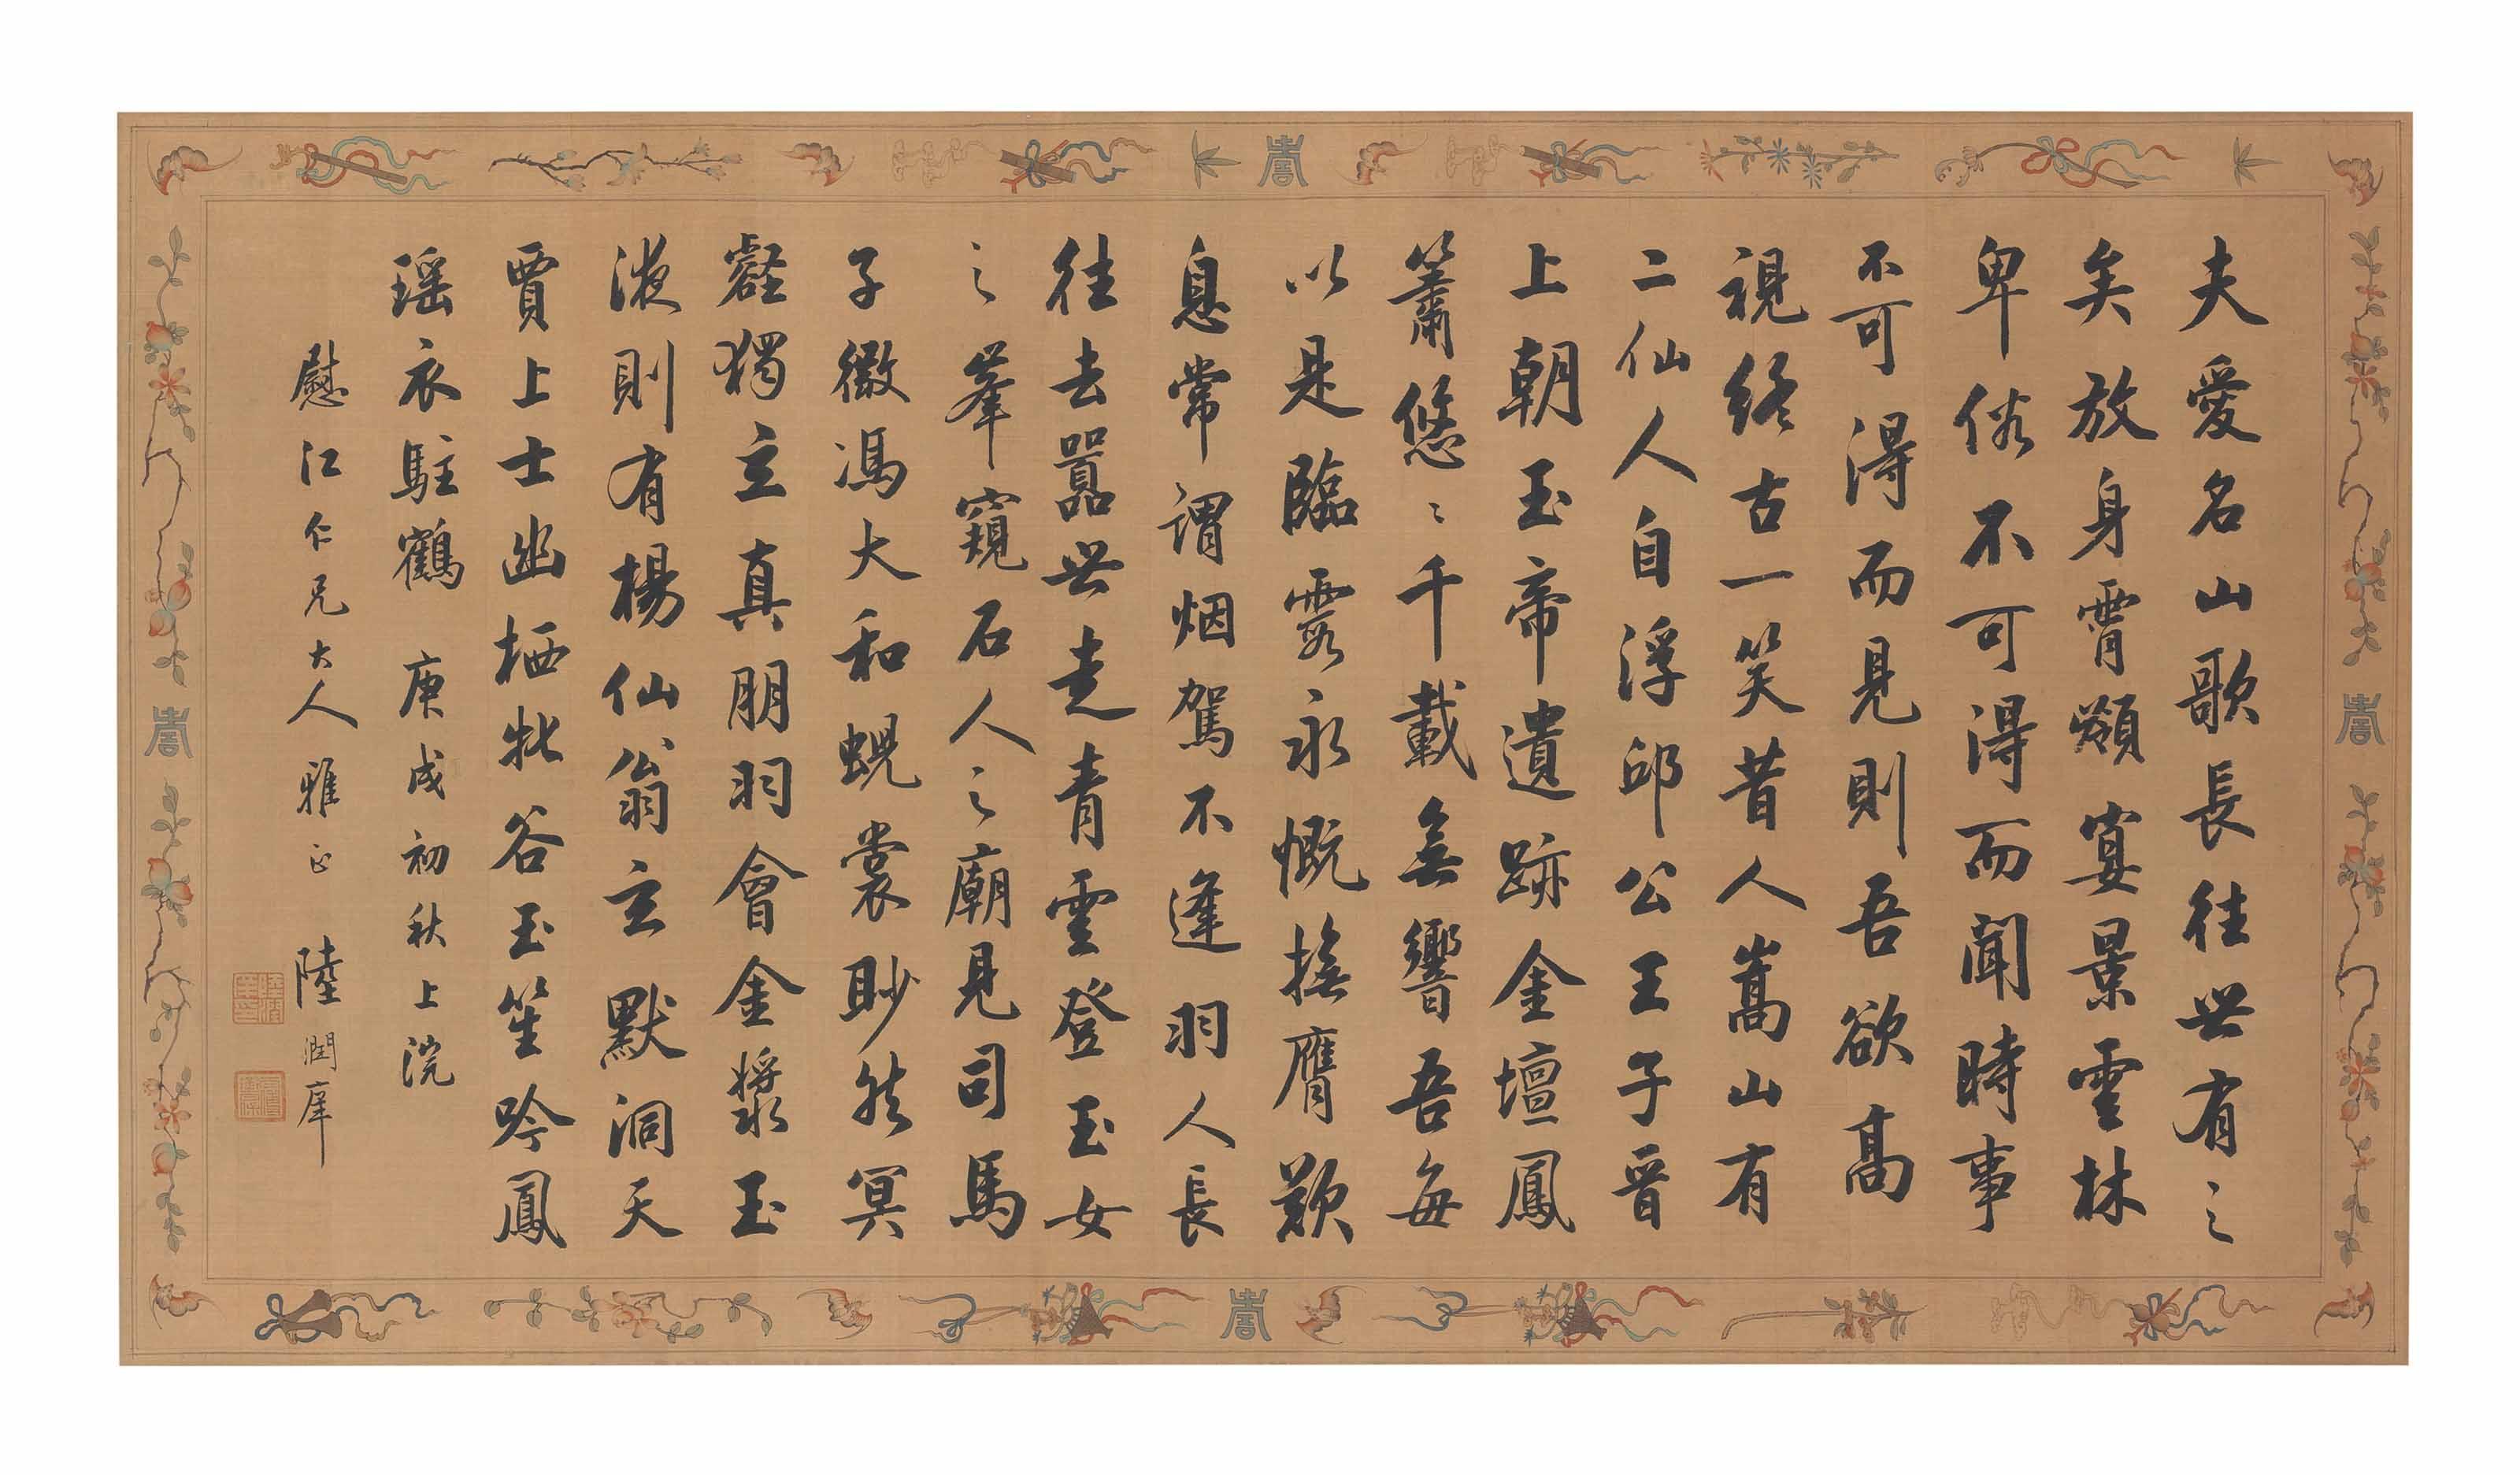 夫愛名山歌長往世有之
矣放身霄宴景雲林
卑俗不可得而聞時事
不可得而見則吾欲高
視終古一笑昔人嵩山有
二仙人自浮邱公王子晉
上朝玉帝遺跡金壇鳳
簫悠〻千載無響吾每
以是臨霞永慨撫膺歎
息常謂烟駕不逢羽人長
往去囂世走青雲登玉女
之峯窺石人之廟見司馬
子微馮大和蜺裳眇然冥
壑獨立真朋羽會金漿玉
液則有楊仙翁玄默洞天
賈上士幽栖牝谷玉笙吟鳳
瑶衣駐鶴 庚戌初秋上浣
慰江仁兄大人雅正 陸潤庠
陸潤庠印